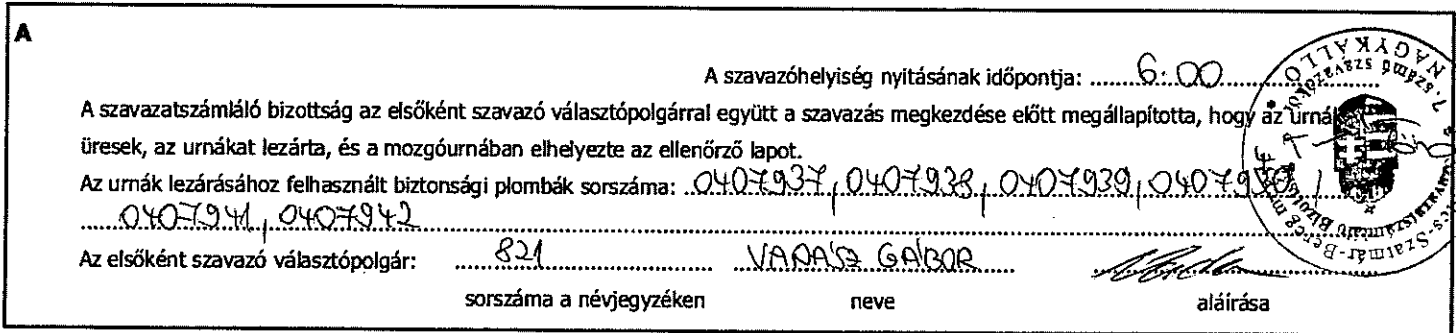 A
A szavazóhelyiség nyitásának időpontja: 6:00
A szavazatszámláló bizottság az elsőként szavazó választópolgárral együtt a szavazás megkezdése előtt megállapította, hogy az urnák
üresek, az urnákat lezárta, és a mozgóurnában elhelyezte az ellenőrző lapot.
Az urnák lezárásához felhasznált biztonsági plombák sorszáma: 0407937, 0407938, 0407939, 0407940,
0407941, 0407942
Az elsőként szavazó választópolgár: 821 VADÁSZ GÁBOR
sorszáma a névjegyzéken neve aláírása
NAGYKÁLLÓ
7. számú szavazókör
Szatmár-Bereg